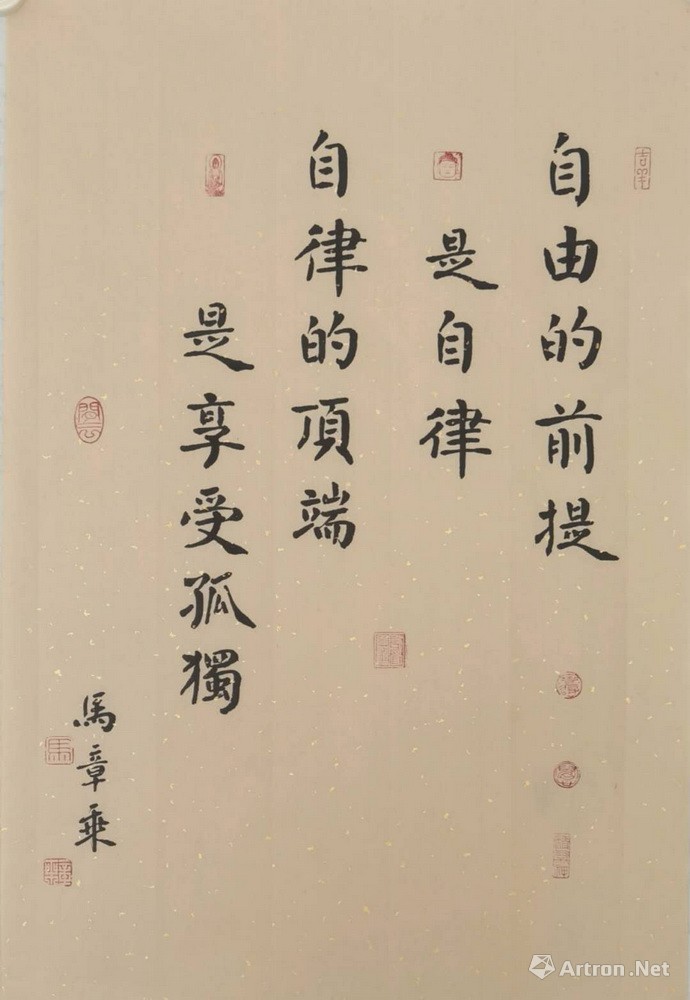 自由的前提
是自律
自律的頂端
是享受孤獨
馬章乘
馬
Artron.Net